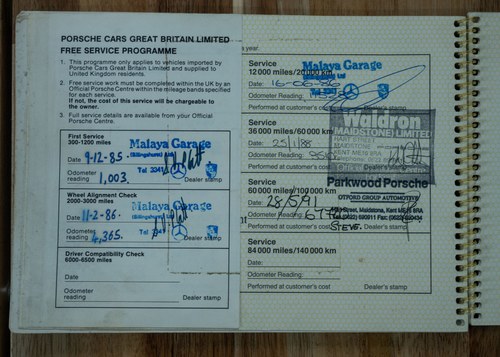 PORSCHE CARS GREAT BRITAIN LIMITED
FREE SERVICE PROGRAMME
1. This programme only applies to vehicles imported by
Porsche Cars Great Britain Limited and supplied to
United Kingdom residents.
2. Free service work must be completed within the UK by an
Official Porsche Centre within the mileage bands specified
for each service.
If not, the cost of this service will be chargeable to
the owner.
3. Full service details are available from your Official
Porsche Centre.
First Service
300-1200 miles
Malaya Garage
(Billingshurst) Ltd
Date: 9-12-85.
Tel
Odometer
reading 1,003.
Dealer stamp
Wheel Alignment Check
2000-3000 miles
Malaya Garage
(Billingshurst) Ltd
Date: 11-2-86.
Tel
Odometer
reading 4,365.
Dealer stamp
Driver Compatibility Check
6000-8500 miles
Date
Odometer
reading
Dealer stamp
year.
Service
12 000 miles/20 000 km
Malaya Garage
Date:
Odometer Reading:
Performed at customer's cost
Dealer's stamp
Service
36 000 miles/60 000 km
Date: 25/1/88
Odometer Reading:
Performed at customer's cost
Waldron
(MAIDSTONE) LIMITED
HART STREET
MAIDSTONE
KENT ME16 8RA
Service
60 000 miles/100 000 km
Date: 28/5/91
Odometer Reading:
Performed at customer's cost
STEVE.
Parkwood Porsche
OTFORD GROUP AUTOMOTIVE
Street, Maidstone, Kent ME16 8RA
Service
84 000 miles/140 000 km
Date:
Odometer Reading:
Performed at customer's cost
Dealer's stamp